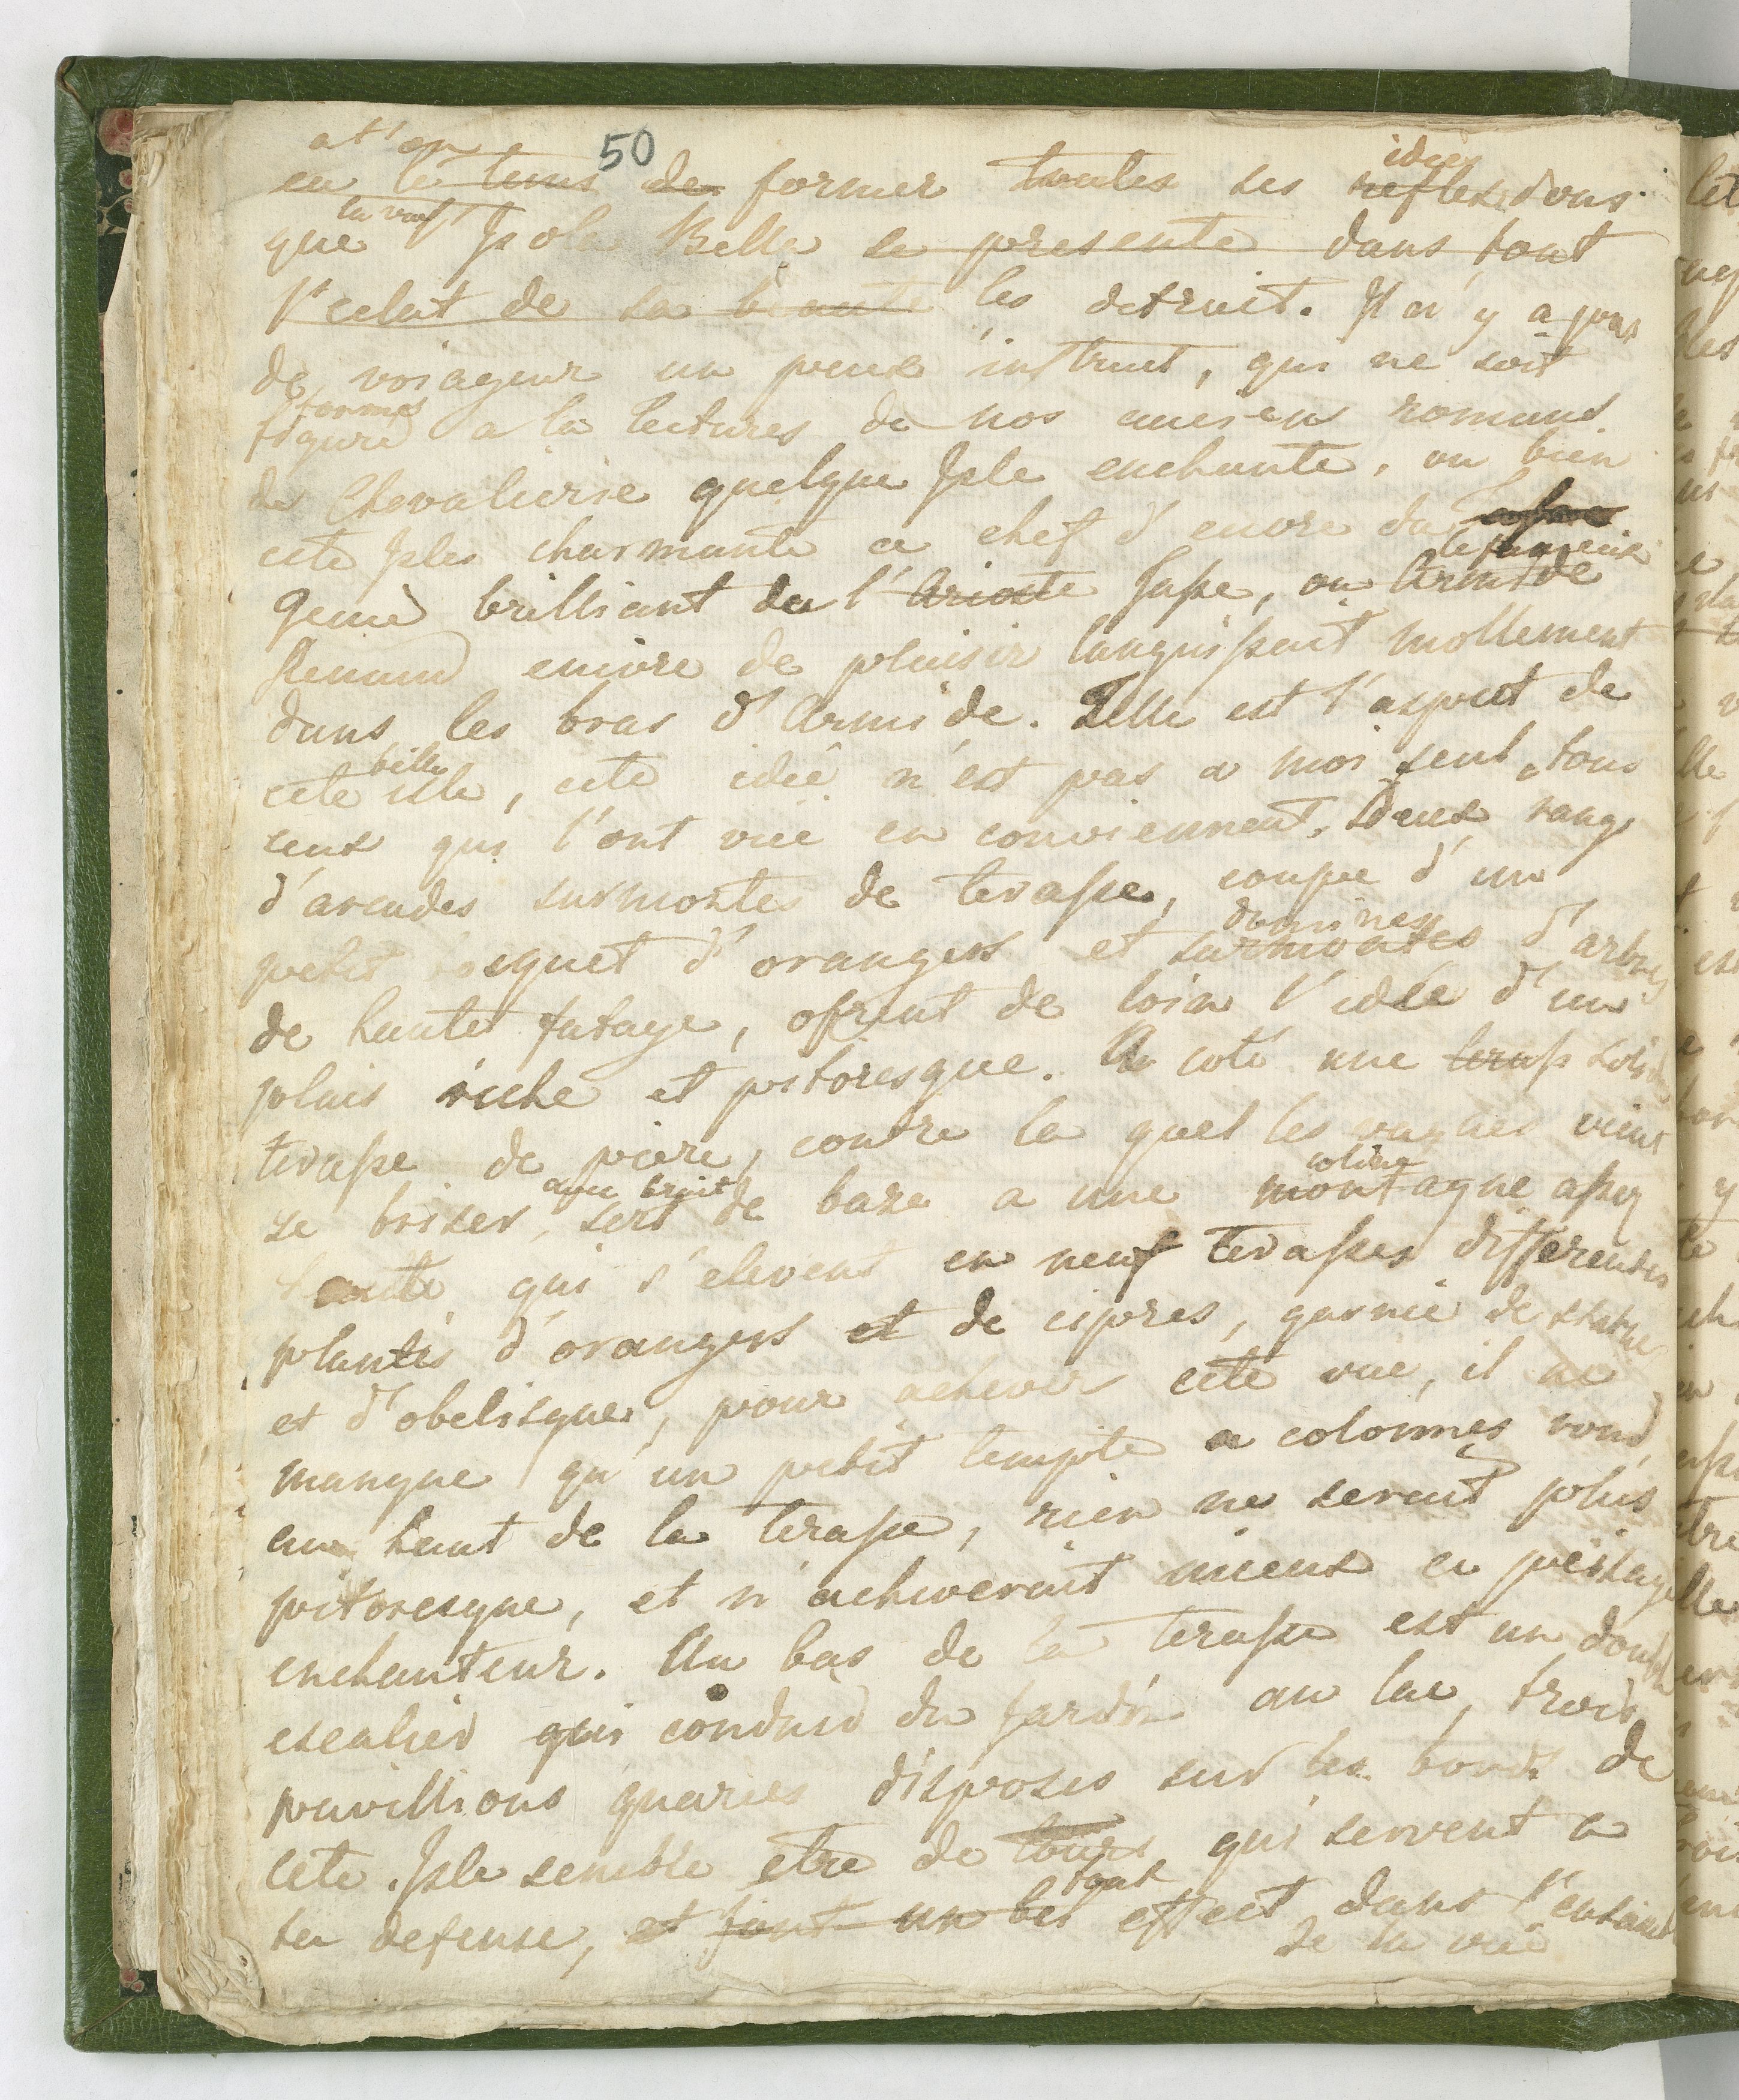 50
at'on
idees
en le tems de former toutes ses reflexions
la vue
que Isola Belle se presente dans tout
l'eclat de sa beauté les detruit. Il n'y a pas
de voiageur un peux instruit, qui ne soit
formés
figuré a la lectures de nos anciens romans
de Chevalierie quelque Isle enchante, ou bien
cete Isles charmante ce chef d'euvre du
le fameux
genie brilliant de l'Arioste Tasse, ou Armide
Renaud enivre de plaisir languissait mollement
dans les bras d'Armide. Telle est l'aspect de
belle
cete isle, cete idée n'est pas a moi seul, tous
ceux qui l'ont vue en conviennent. Deux rangs
d'arcades surmontes de terasse, coupe d'un
dominés
petit bosquet d'orangers et surmontes d'arbres
de haute futaye, ofrent de loin l'idée d'un
plais riche et pitoresque. A coté une terass solide
terasse de piere, contre la quel les vagues vient
avec bruit
coline
se briser, sert de base a une montagne assez
haute qui s'elevent en neuf terasses differentes
plantés d'orangers et de cipres, garnie de statues
et d'obelisque, pour achever cete vue, il ne
manque qu'un petit temple a colonnes rond
au haut de la terasse, rien ne serait plus
pitoresque, et n'acheverait mieux ce peisage
enchanteur. Au bas de la terasse est un double
escalier qui conduid du jardin au lac, trois
pavillions quaries disposes sur les bords de
cete Isle semble etre de tours qui servent a
font
sa defense, et font un bel effect dans l'ensemble
de la vue